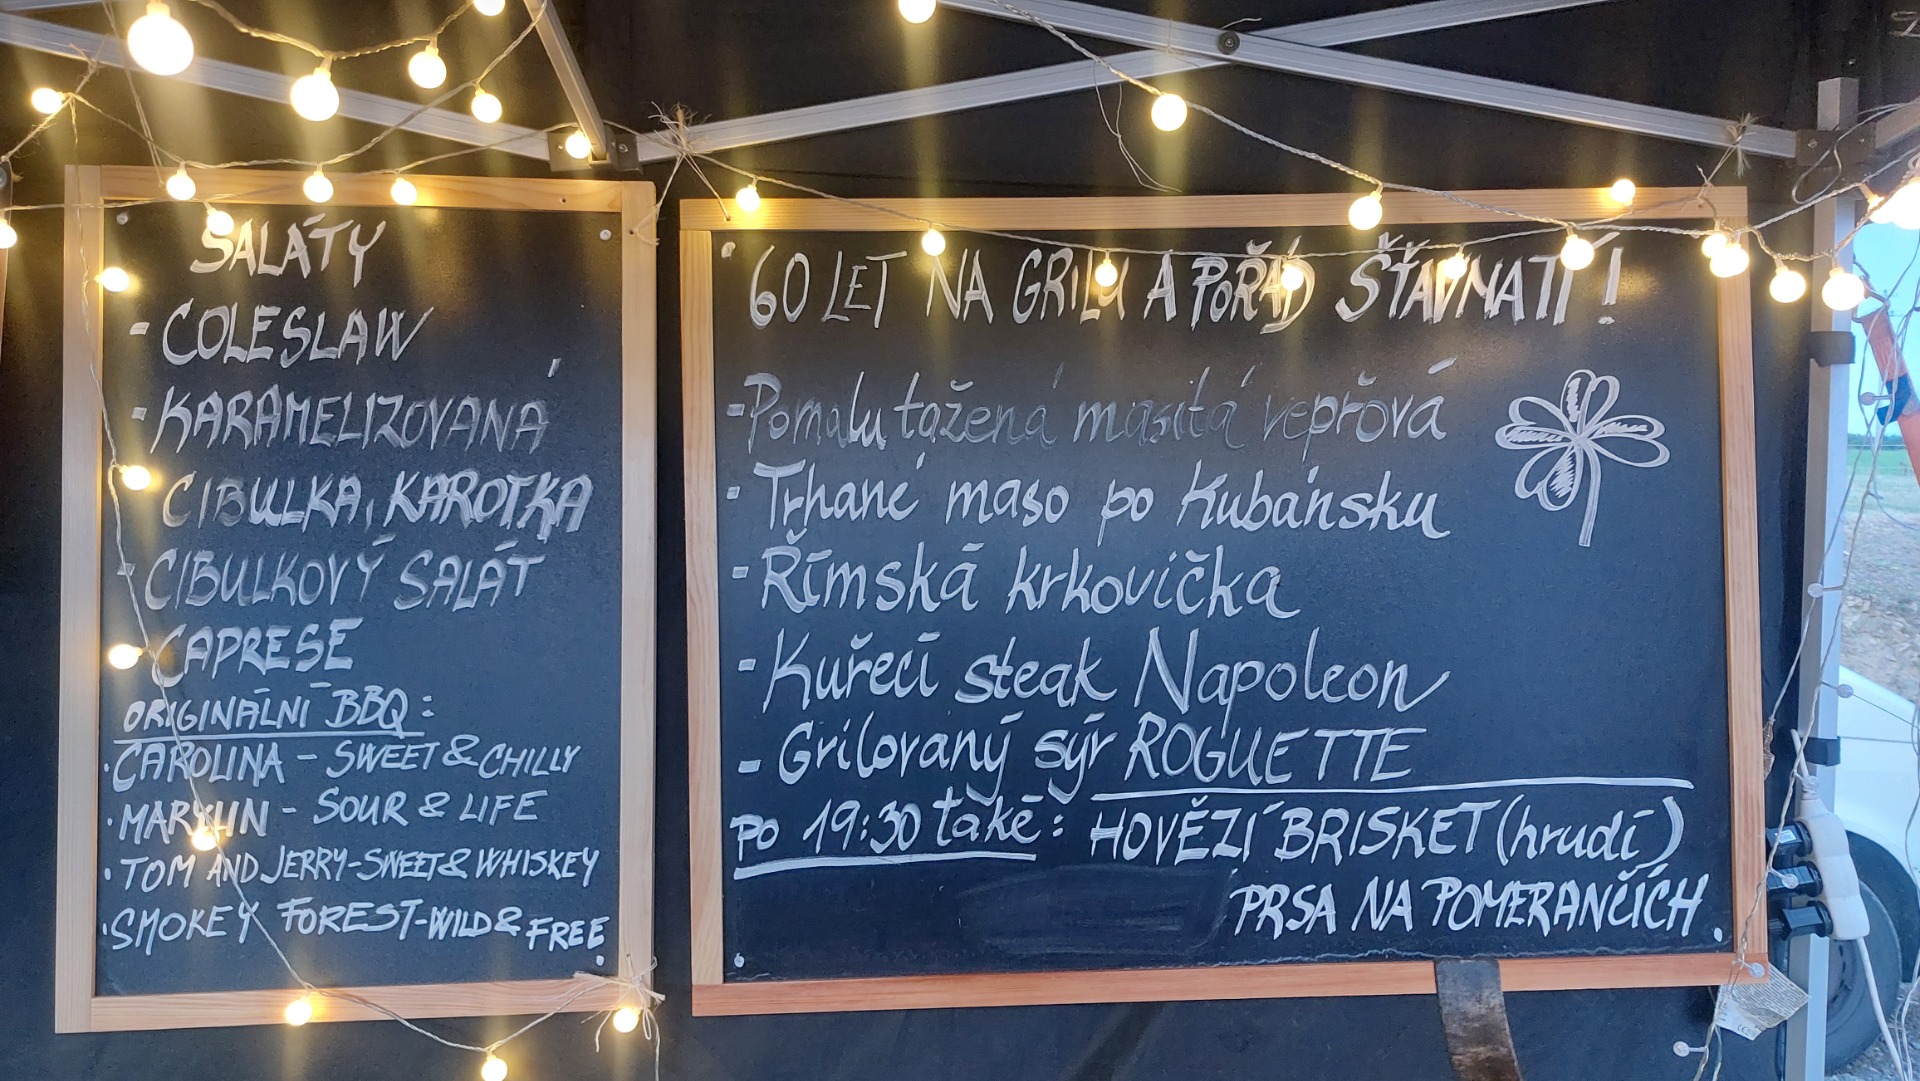 SALÁTY
- COLESLAW
- KARAMELIZOVANÁ
CIBULKA, KAROTKA
- CIBULKOVÝ SALÁT
CAPRESE
ORIGINÁLNÍ BBQ:
· CAROLINA - SWEET & CHILLY
· MARYLIN - SOUR & LIFE
· TOM AND JERRY - SWEET & WHISKEY
· SMOKEY FOREST - WILD & FREE
60 LET NA GRILU A POŘÁD ŠŤAVNATÍ!
- Pomalu tažená masitá vepřová
- Trhané maso po Kubánsku
- Římská krkovička
- Kuřecí steak Napoleon
- Grilovaný sýr ROGUETTE
po 19:30 také: HOVĚZÍ BRISKET (hrudí)
PRSA NA POMERANČÍCH